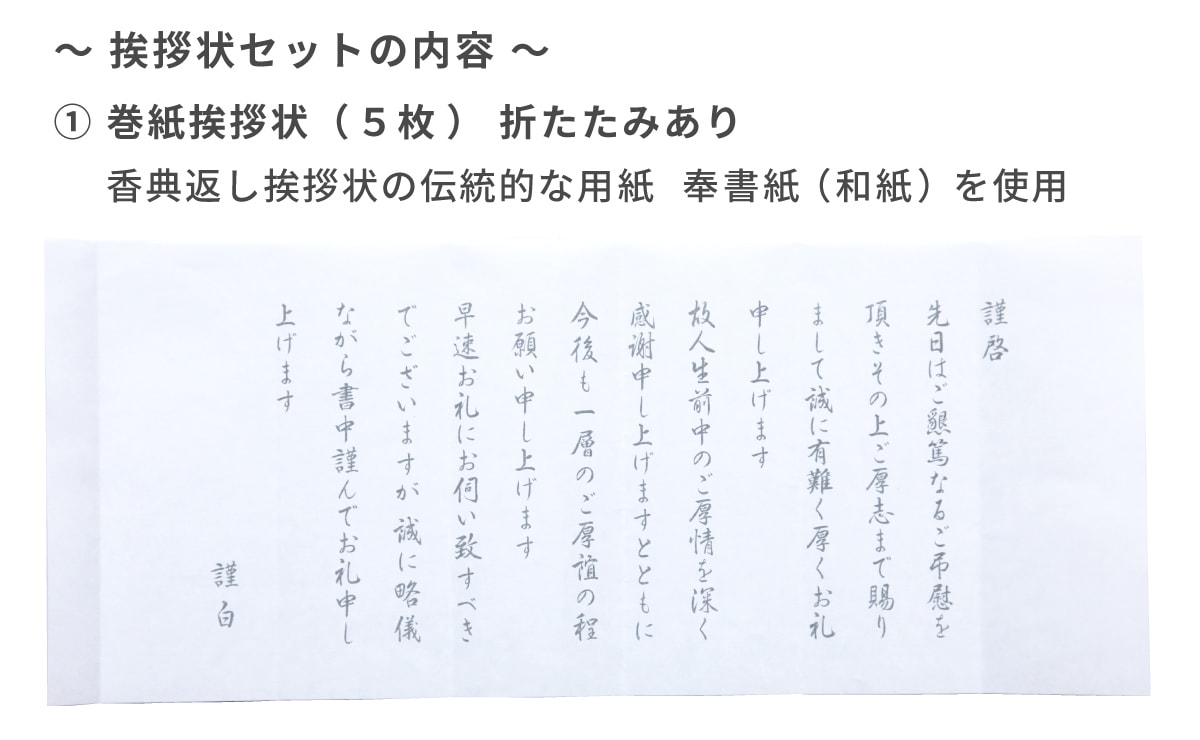 ～ 挨拶状セットの内容 ～
① 巻紙挨拶状（５枚） 折たたみあり
香典返し挨拶状の伝統的な用紙 奉書紙（和紙）を使用
謹啓
先日はご懇篤なるご弔慰を
頂きその上ご厚志まで賜り
まして誠に有難く厚くお礼
申し上げます
故人生前中のご厚情を深く
感謝申し上げますとともに
今後も一層のご厚誼の程
お願い申し上げます
早速お礼にお伺い致すべき
でございますが 誠に略儀
ながら書中謹んでお礼申し
上げます
謹白